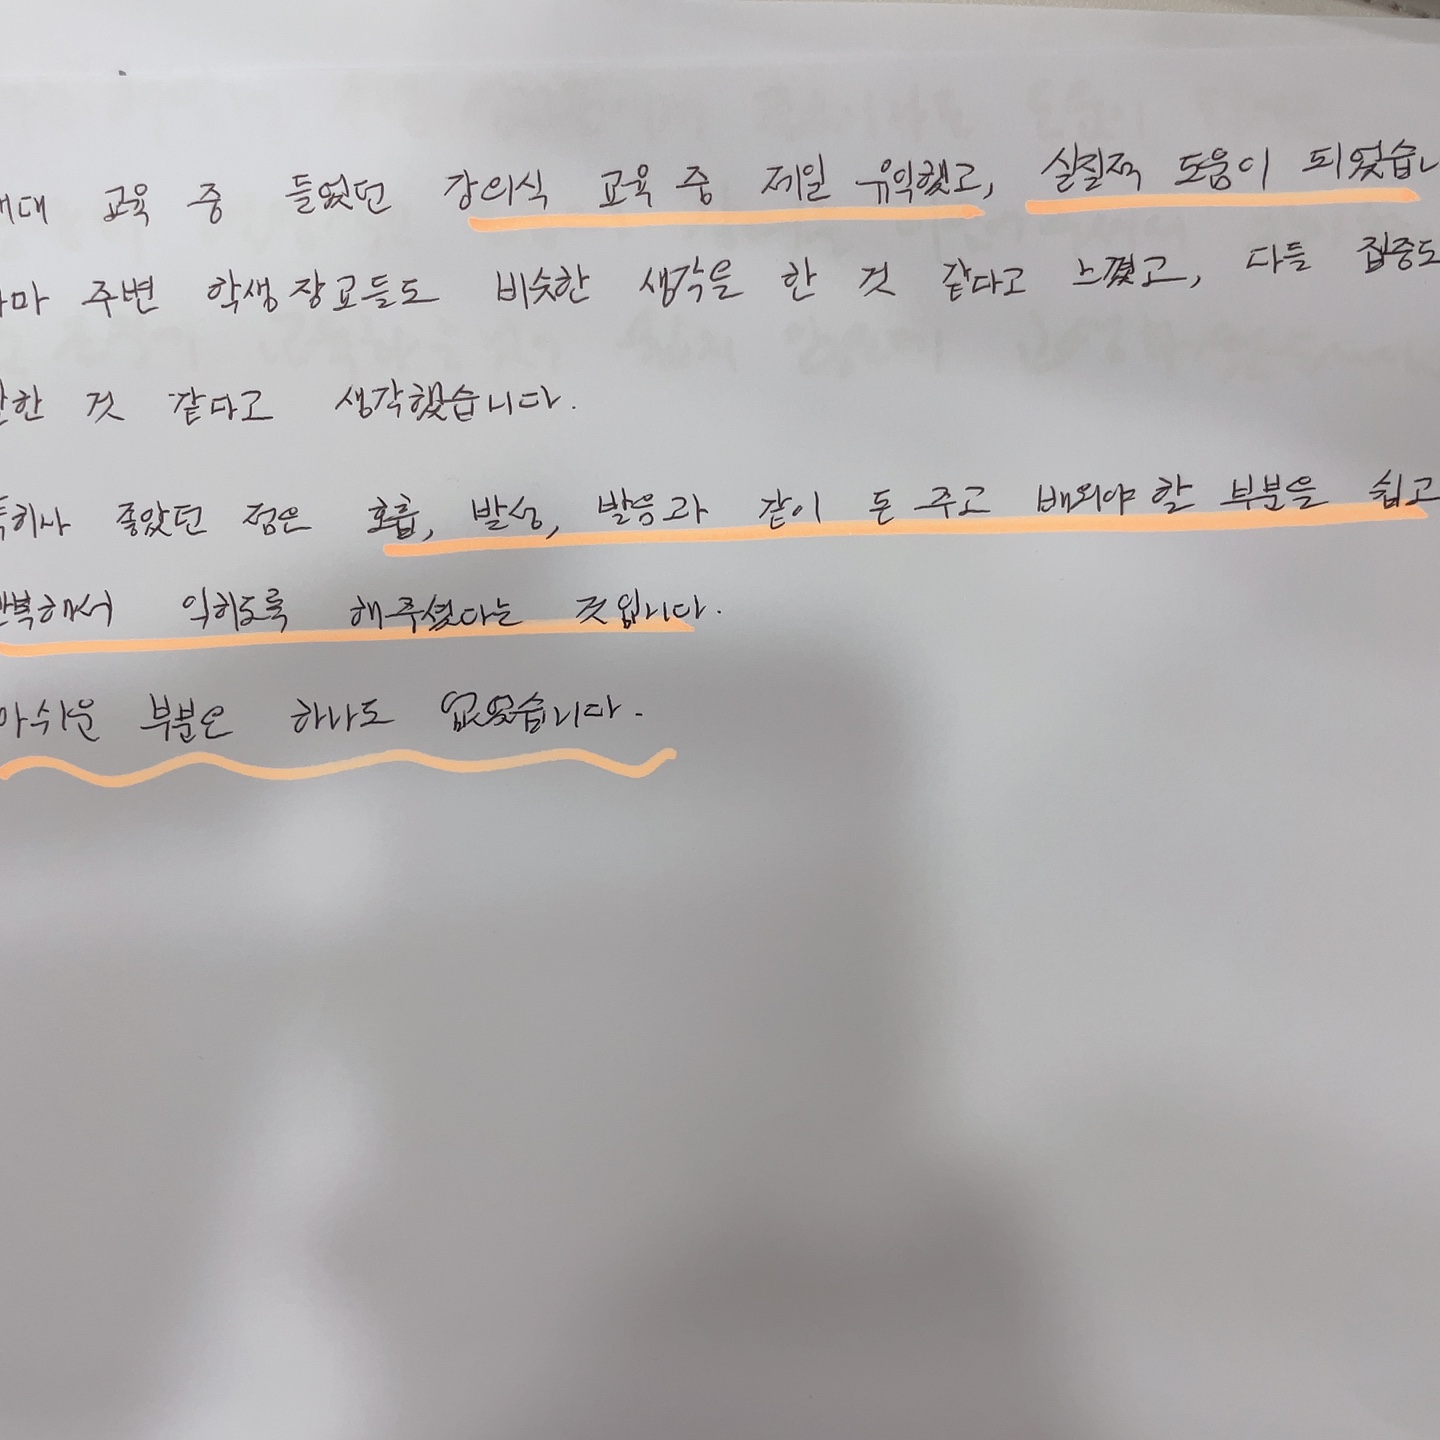 교육 중 들었던 강의식 교육 중 제일 유익했고, 실질적 도움이 되었습니
주변 학생장교들도 비슷한 생각을 한 것 같다고 느꼈고, 다들 집중도
한 것 같다고 생각했습니다.
특히나 좋았던 점은 호흡, 발성, 발음과 같이 돈 주고 배워야 할 부분을 쉽고
반복해서 익히도록 해주셨다는 것입니다.
아쉬운 부분은 하나도 없었습니다.